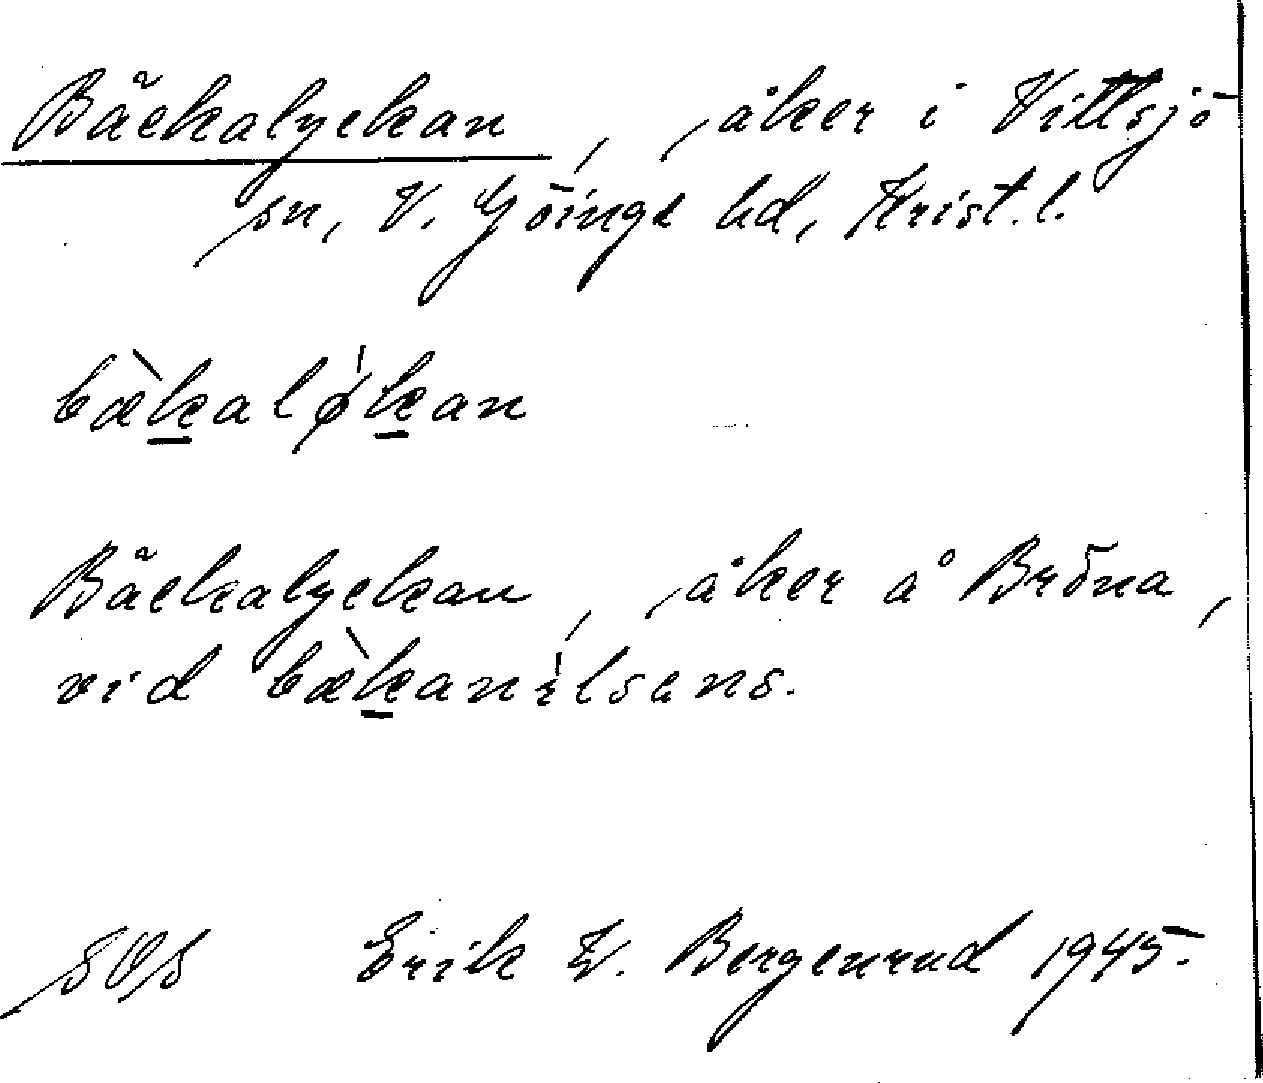 Bäckalyckan, åker i Vittsjö
sn, V. Göinge hd, Krist. l.
bæ̀kalǿkan
Bäckalyckan, åker å Bröna,
vid bæ̀kanílsans.
SOS Erik W. Bergenrud 1945.